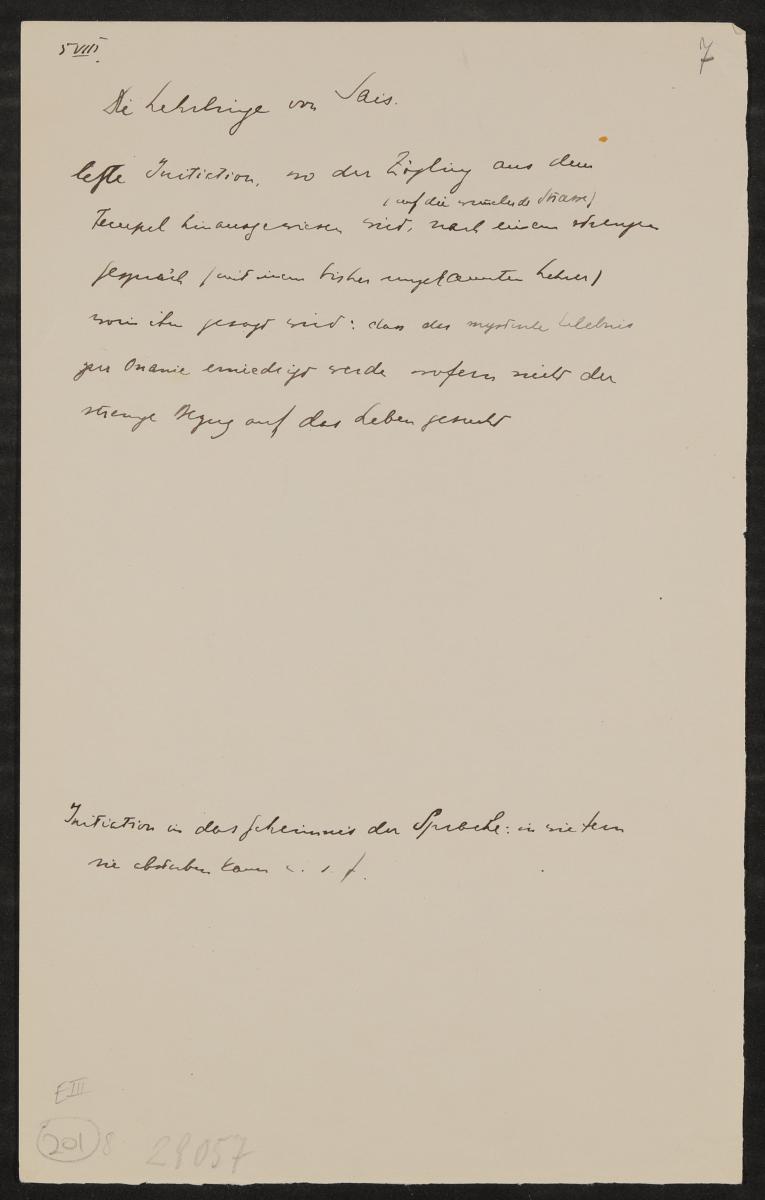 5 VIII.
7
Die Lehrlinge von Sais.
letzte Initiation, wo der Zögling aus dem
(auf die wimmelnde Strasse)
Tempel hinausgewiesen wird, nach einem strengen
Gespräch (mit einem bisher ungekannten Lehrer)
worin ihm gesagt wird: dass das mystische Erlebnis
zur Onanie erniedrigt werde wofern nicht der
strenge Bezug auf das Leben gesucht
Initiation in das Geheimnis der Sprache: in wiefern
sie absterben kann u. s. f.
E III
201 8 28057